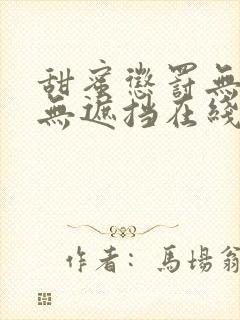 甜蜜懲罰無
無遮挡在綫
作者：馬場翁